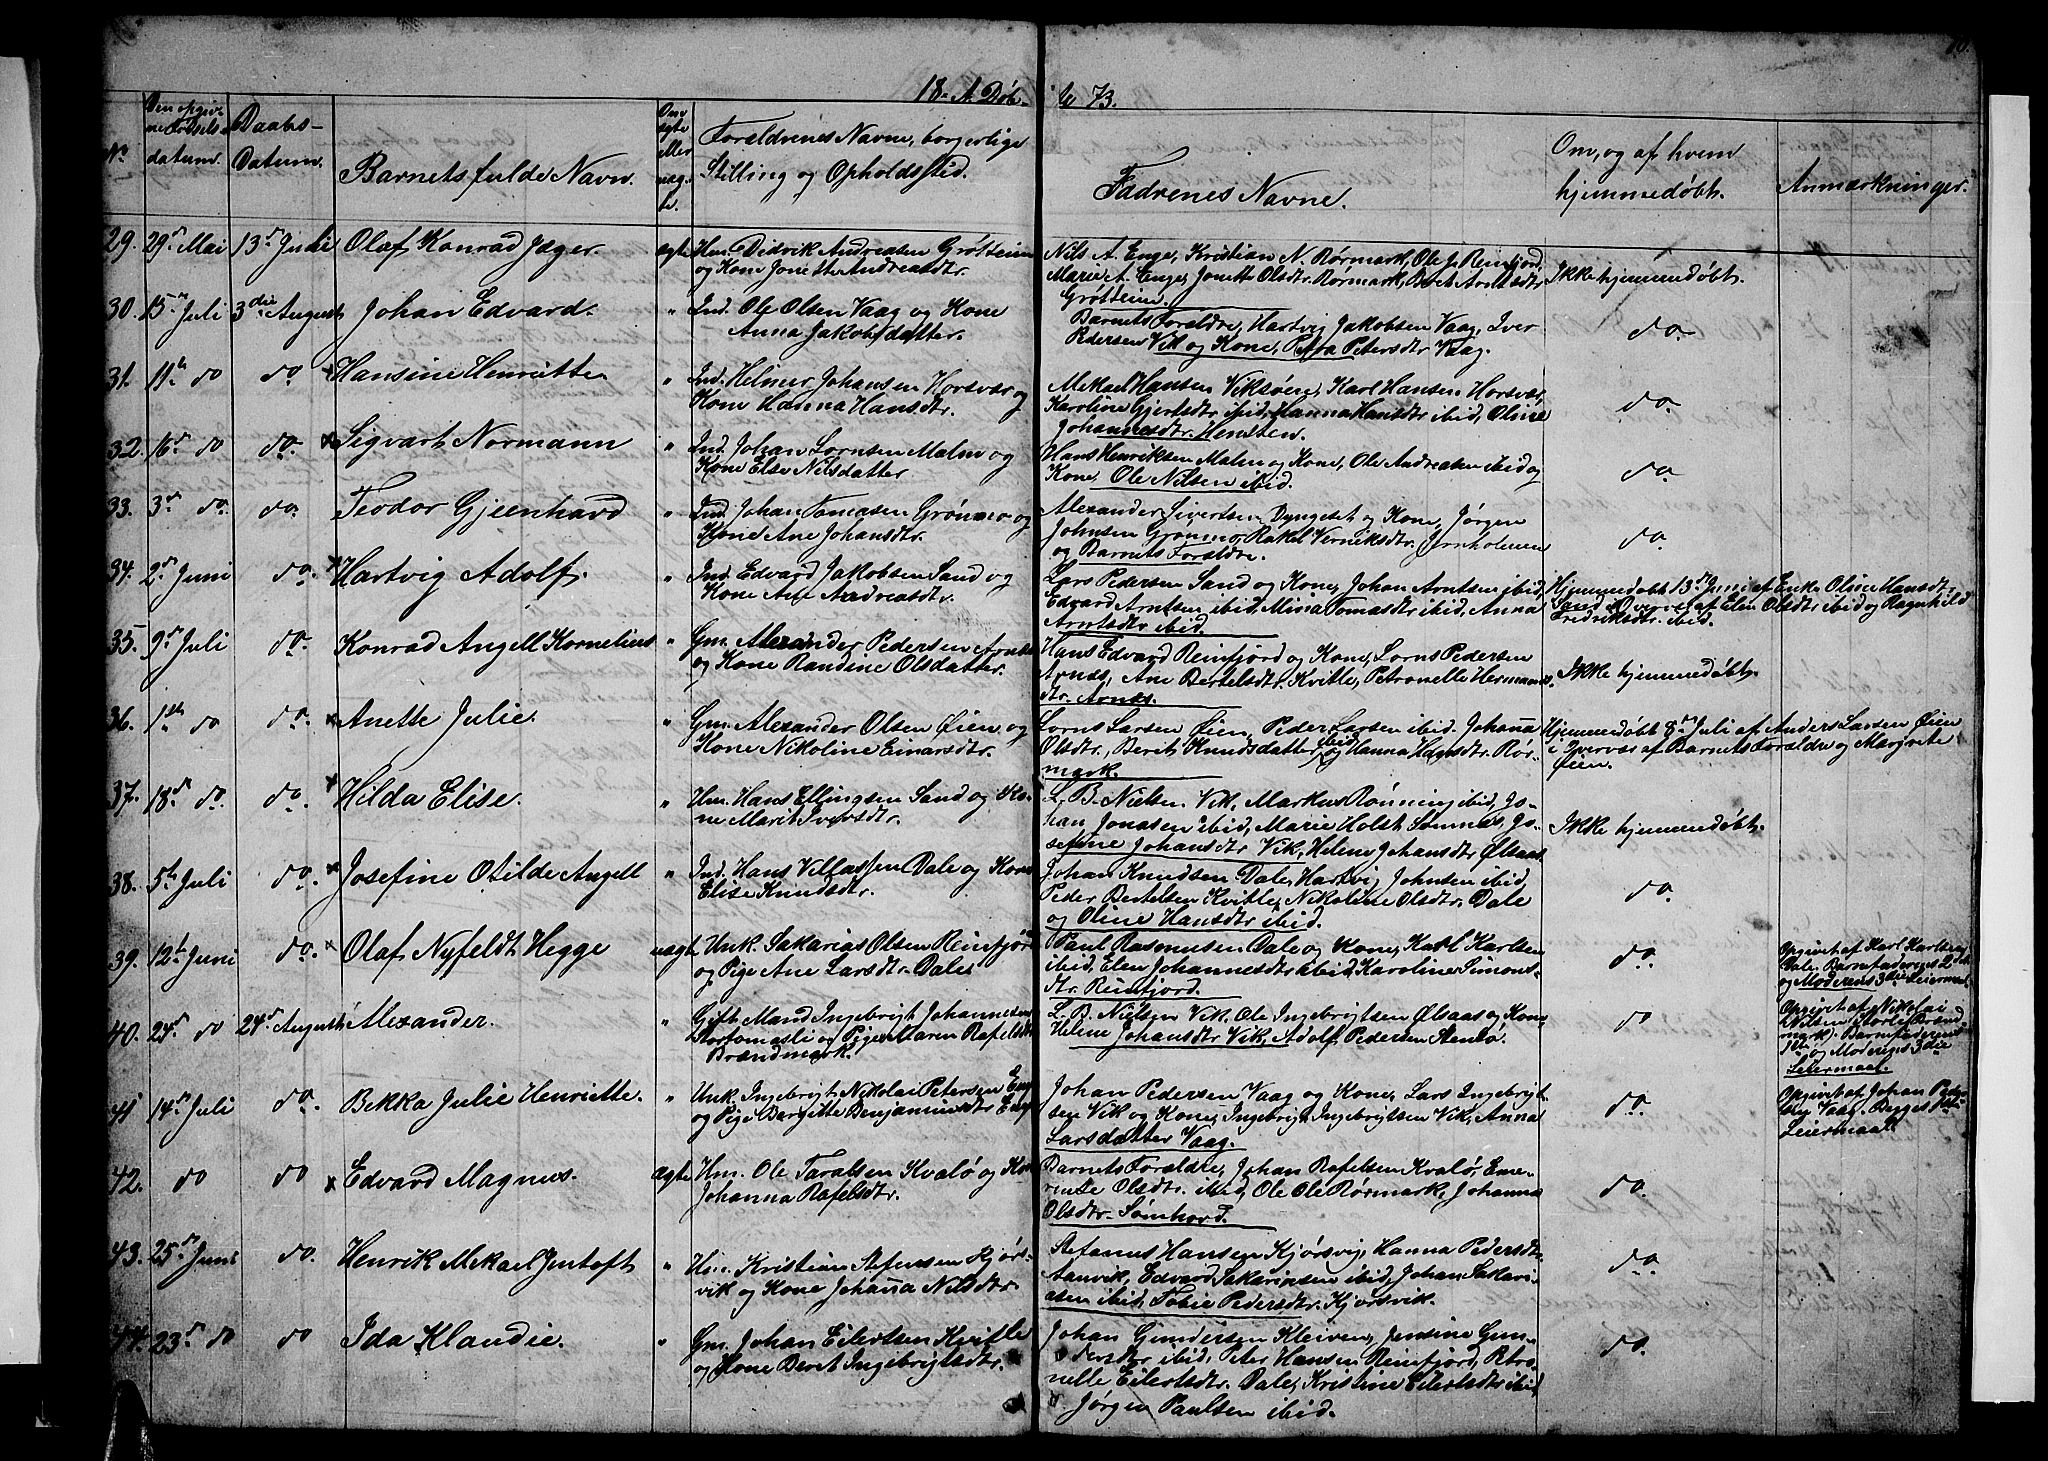 18- A. Døb- te 73.
10.
No
Den opgiv-
ne Fødsels-
datum.
Daabs-
Datum.
Barnets fulde Navn.
Om
ægte
eller
uæg-
te.
Forældrenes Navne, borgerlige
Stilling og Opholdssted.
Fadrenes Navne.
Om, og af hvem
hjemmedøbt.
Anmærkninger.
29. 29de Mai 13de Juli Olaf Konrad Jæger. ægte Hm. Didrik Andreasen Grøtteim
og Kone Jonetta Andreasdtr.
Nils A. Enge, Kristian N. Rørmark, Ole J. Reinfjord,
Marie A. Enge, Jonette Olsdtr. Rørmark, Beret Arntsdtr
Grøtteim.
Ikke hjemmedøbt.
30. 15de Juli 3die August Johan Edvard. " Ind. Ole Olsen Vaag og Kone
Anna Jakobsdatter.
Barnets Foraldre, Hartvig Jakobsen Vaag, Iver
Pedersen Vik og Kone, Petra Petersdtr Vaag.
do.
31. 11te do do. Hansine Henriette " Ind. Helmer Johansen Horsvær og
Kone Hanna Hansdtr.
Mekael Hansen Viksøere, Karl Hansen Horsvær,
Karoline Gjertsdtr ibid, Hanna Hansdtr ibid, Oline
Johannesdtr. Hensten.
do.
32. 16de do do. x Sigvart Normann " Ind. Johan Lornsen Malm og
Kone Else Nilsdatter
Hans Henriksen Malm og Kone, Ole Andreasen ibid og
Kone, Ole Nilsen ibid.
do
33. 3de do. do. Teodor Gjeenhard " Ind. Johan Tomasen Grønmo og
Kone Ane Johansdtr.
Alexander Sivertsen Dyngeset og Kone, Jørgen
Johnsen Grønmo, Rakel Verniksdtr. Jernholmen
og Barnets Foraldre.
do
34. 2de Juni do. x Hartvig Adolf. " Ind. Edvard Jakobsen Sand og
Kone Ane Andreasdtr.
Lars Pedersen Sand og Kone, Johan Arntsen ibid,
Edvard Arntsen ibid, Miria Tomasdtr ibid, Anna
Arntsdtr ibid.
Hjemmedøbt 13de Juni af Enke Oline Hansdtr
Sand i Overvær af Elen Olsdtr ibid og Ragnhild
Fredriksdtr. ibid.
35. 9de Juli do. Konrad Angell Kornelius " Gm. Alexander Pedersen Arnæs
og Kone Randine Olsdatter.
Hans Edvard Reinfjord og Kone, Lorns Pedersen
Arnæs, Ane Bertelsdtr. Kvitle, Petronelle Hermans-
dtr. Arnæs.
Ikke hjemmedøbt.
36. 1ste do do. x Anette Julie. " Gm. Alexander Olsen Øien og
Kone Nikoline Einarsdtr.
Lorns Larsen Øien, Peder Larsen ibid. Johanna
Olsdtr., Berit Knudsdatter ibid og Hanna Hansdtr. Rør-
mark.
Hjemmedøbt 8de Juli af Anders Larsen Øien
i Overvær af Barnets Foraldre og Margrete
Øien.
37. 18de do. do. x Hilda Elise. " Hm. Hans Ellingsen Sand og Ko-
ne Marit Iversdtr.
L. B. Nielsen Vik, Markus Rønning ibid, Jo-
han Jonasen ibid, Marie Holst Sømnæs, Jo-
sefine Johansdtr Vik, Helene Johansdtr Ølsaas
Ikke hjemmedøbt.
38. 5te Juli do. x Josefine Otilde Angell " Ind. Hans Villassen Dale og Kone
Elise Knudsdtr.
Johan Knudsen Dale, Hartvig Johnsen ibid,
Peder Bertelsen Kvitle, Nikoline Olsdtr. Dale
og Oline Hansdtr ibid.
do.
39. 12te Juni do. x Olaf Nyfeldt Hegge uægte Unk. Sakarias Olsen Reinfjord
og Pige Ane Larsdtr. Dale.
Paul Rasmusen Dale og Kone, Karl Karlsen
ibid, Elen Johannesdtr ibid, Karoline Simons-
dtr. Reinfjord.
do.
Opgivet af Karl Karlsen
Dale. Barnefaderens 2det
og Moderens 3die Leiermaal.
40. 24de do 24de August Alexander. " Gift Mand Ingebrigt Johannesen
Stortomasli og Pige Maren Rafelsdtr
Brændmark.
L. B. Nielsen Vik, Ole Ingebrigtsen Ølsaas og Kone
Helene Johansdtr Vik, Adolf Pedersen Stenlø.
do
Opgivet af Nikolai
Nilsen Storli (Brænd-
mark). Barnefaderens
1ste og Moderens 3die
Leiermaal.
41 14de Juli do. Bekka Julie Henriette. " Unk. Ingebrigt Nikolai Petersen Enge
og Pige Bergitte Benjaminsdtr Enge
Johan Pedersen Vaag og Kone, Lars Ingebrigt-
sen Vik og Kone, Ingebrigt Ingebrigtsen Vik, Anna
Larsdatter Vaag.
do.
Opgivet af Johan Peder-
sen Vaag. Begges 1ste
Leiermaal.
42. do do x Edvard Magnus. ægte Hm. Ole Taralsen Kvalø og Kone
Johanna Rafelsdtr.
Barnets Foraldre, Johan Rafelsen Kvalø, Eme-
rense Olsdtr. ibid, Ole Ole Rørmark, Johanna
Olsdtr. Sømhovd.
do.
43. 25de Juni do. Henrik Mekael Jentoft " Hm. Kristian Stefensen Kjørs-
vik og Kone Johanna Nilsdtr.
Stefanus Hansen Kjørsvig, Hanna Pedersdtr
Aanvik, Edvard Sakariasen ibid, Johan Sakari-
asen ibid, Tobie Pedersdtr. Kjørsvik.
do.
44. 23de do do Ida Klandie. " Gm. Johan Eilertsen Kvitle
og Kone Beret Ingebrigtsdtr.
Johan Gundersen Kleiven, Jensine Gun-
dersdtr ibid, Peter Hansen Reinfjord, Petro-
nelle Eilertsdtr. Dale, Kristine Eilertsdtr ibid
Jørgen Paulsen ibid.
do.